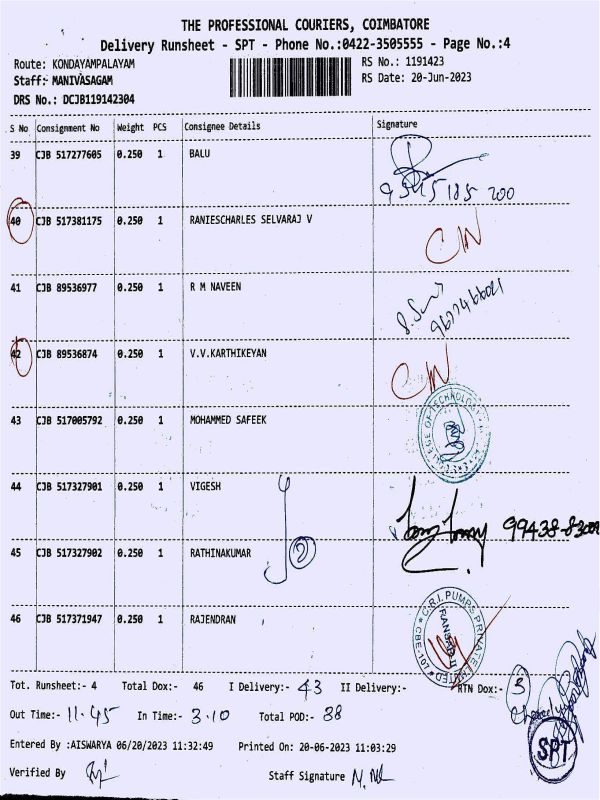 THE PROFESSIONAL COURIERS, COIMBATORE
Delivery Runsheet - SPT - Phone No.:0422-3505555 - Page No.:4
Route: KONDAYAMPALAYAM RS No.: 1191423
Staff:- MANIVASAGAM RS Date: 20-Jun-2023
DRS No.: DCJB119142304
S No Consignment No Weight PCS Consignee Details Signature
39 CJB 517277605 0.250 1 BALU
40 CJB 517381175 0.250 1 RANIESCHARLES SELVARAJ V
41 CJB 89536977 0.250 1 R M NAVEEN
42 CJB 89536874 0.250 1 V.V.KARTHIKEYAN
43 CJB 517005792 0.250 1 MOHAMMED SAFEEK
44 CJB 517327901 0.250 1 VIGESH
45 CJB 517327902 0.250 1 RATHINAKUMAR
46 CJB 517371947 0.250 1 RAJENDRAN
C.R.I. PUMPS PRIVATE LIMITED
Tot. Runsheet:- 4 Total Dox:- 46 I Delivery:- 43 II Delivery:- RTN Dox:- 3
Out Time:- 11.45 In Time:- 3.10 Total POD:- 38
SPT
Entered By :AISWARYA 06/20/2023 11:32:49 Printed On: 20-06-2023 11:03:29
Verified By Staff Signature